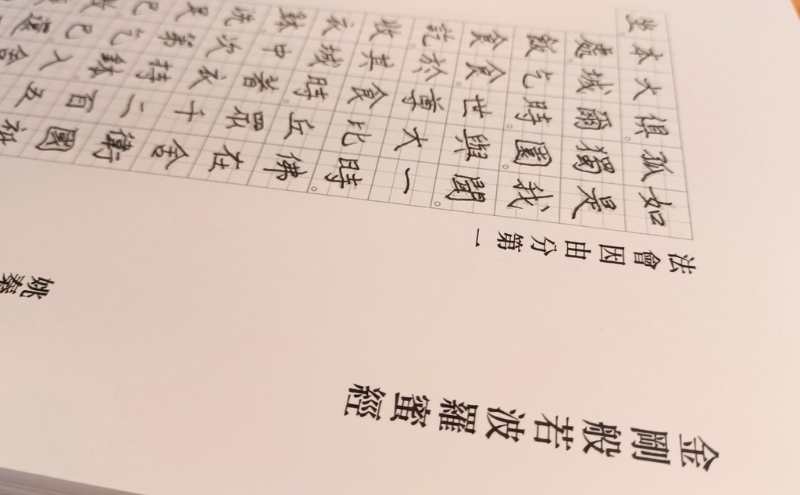 金剛般若波羅蜜經
姚秦
法會因由分第一
如是我聞。一時。佛在舍衛國祇
孤獨園。與大比丘眾千二百五
俱。爾時。世尊食時。著衣持鉢入舍
大城乞食。於其城中次第乞已還
本處飯食訖。收衣鉢。洗足已
坐